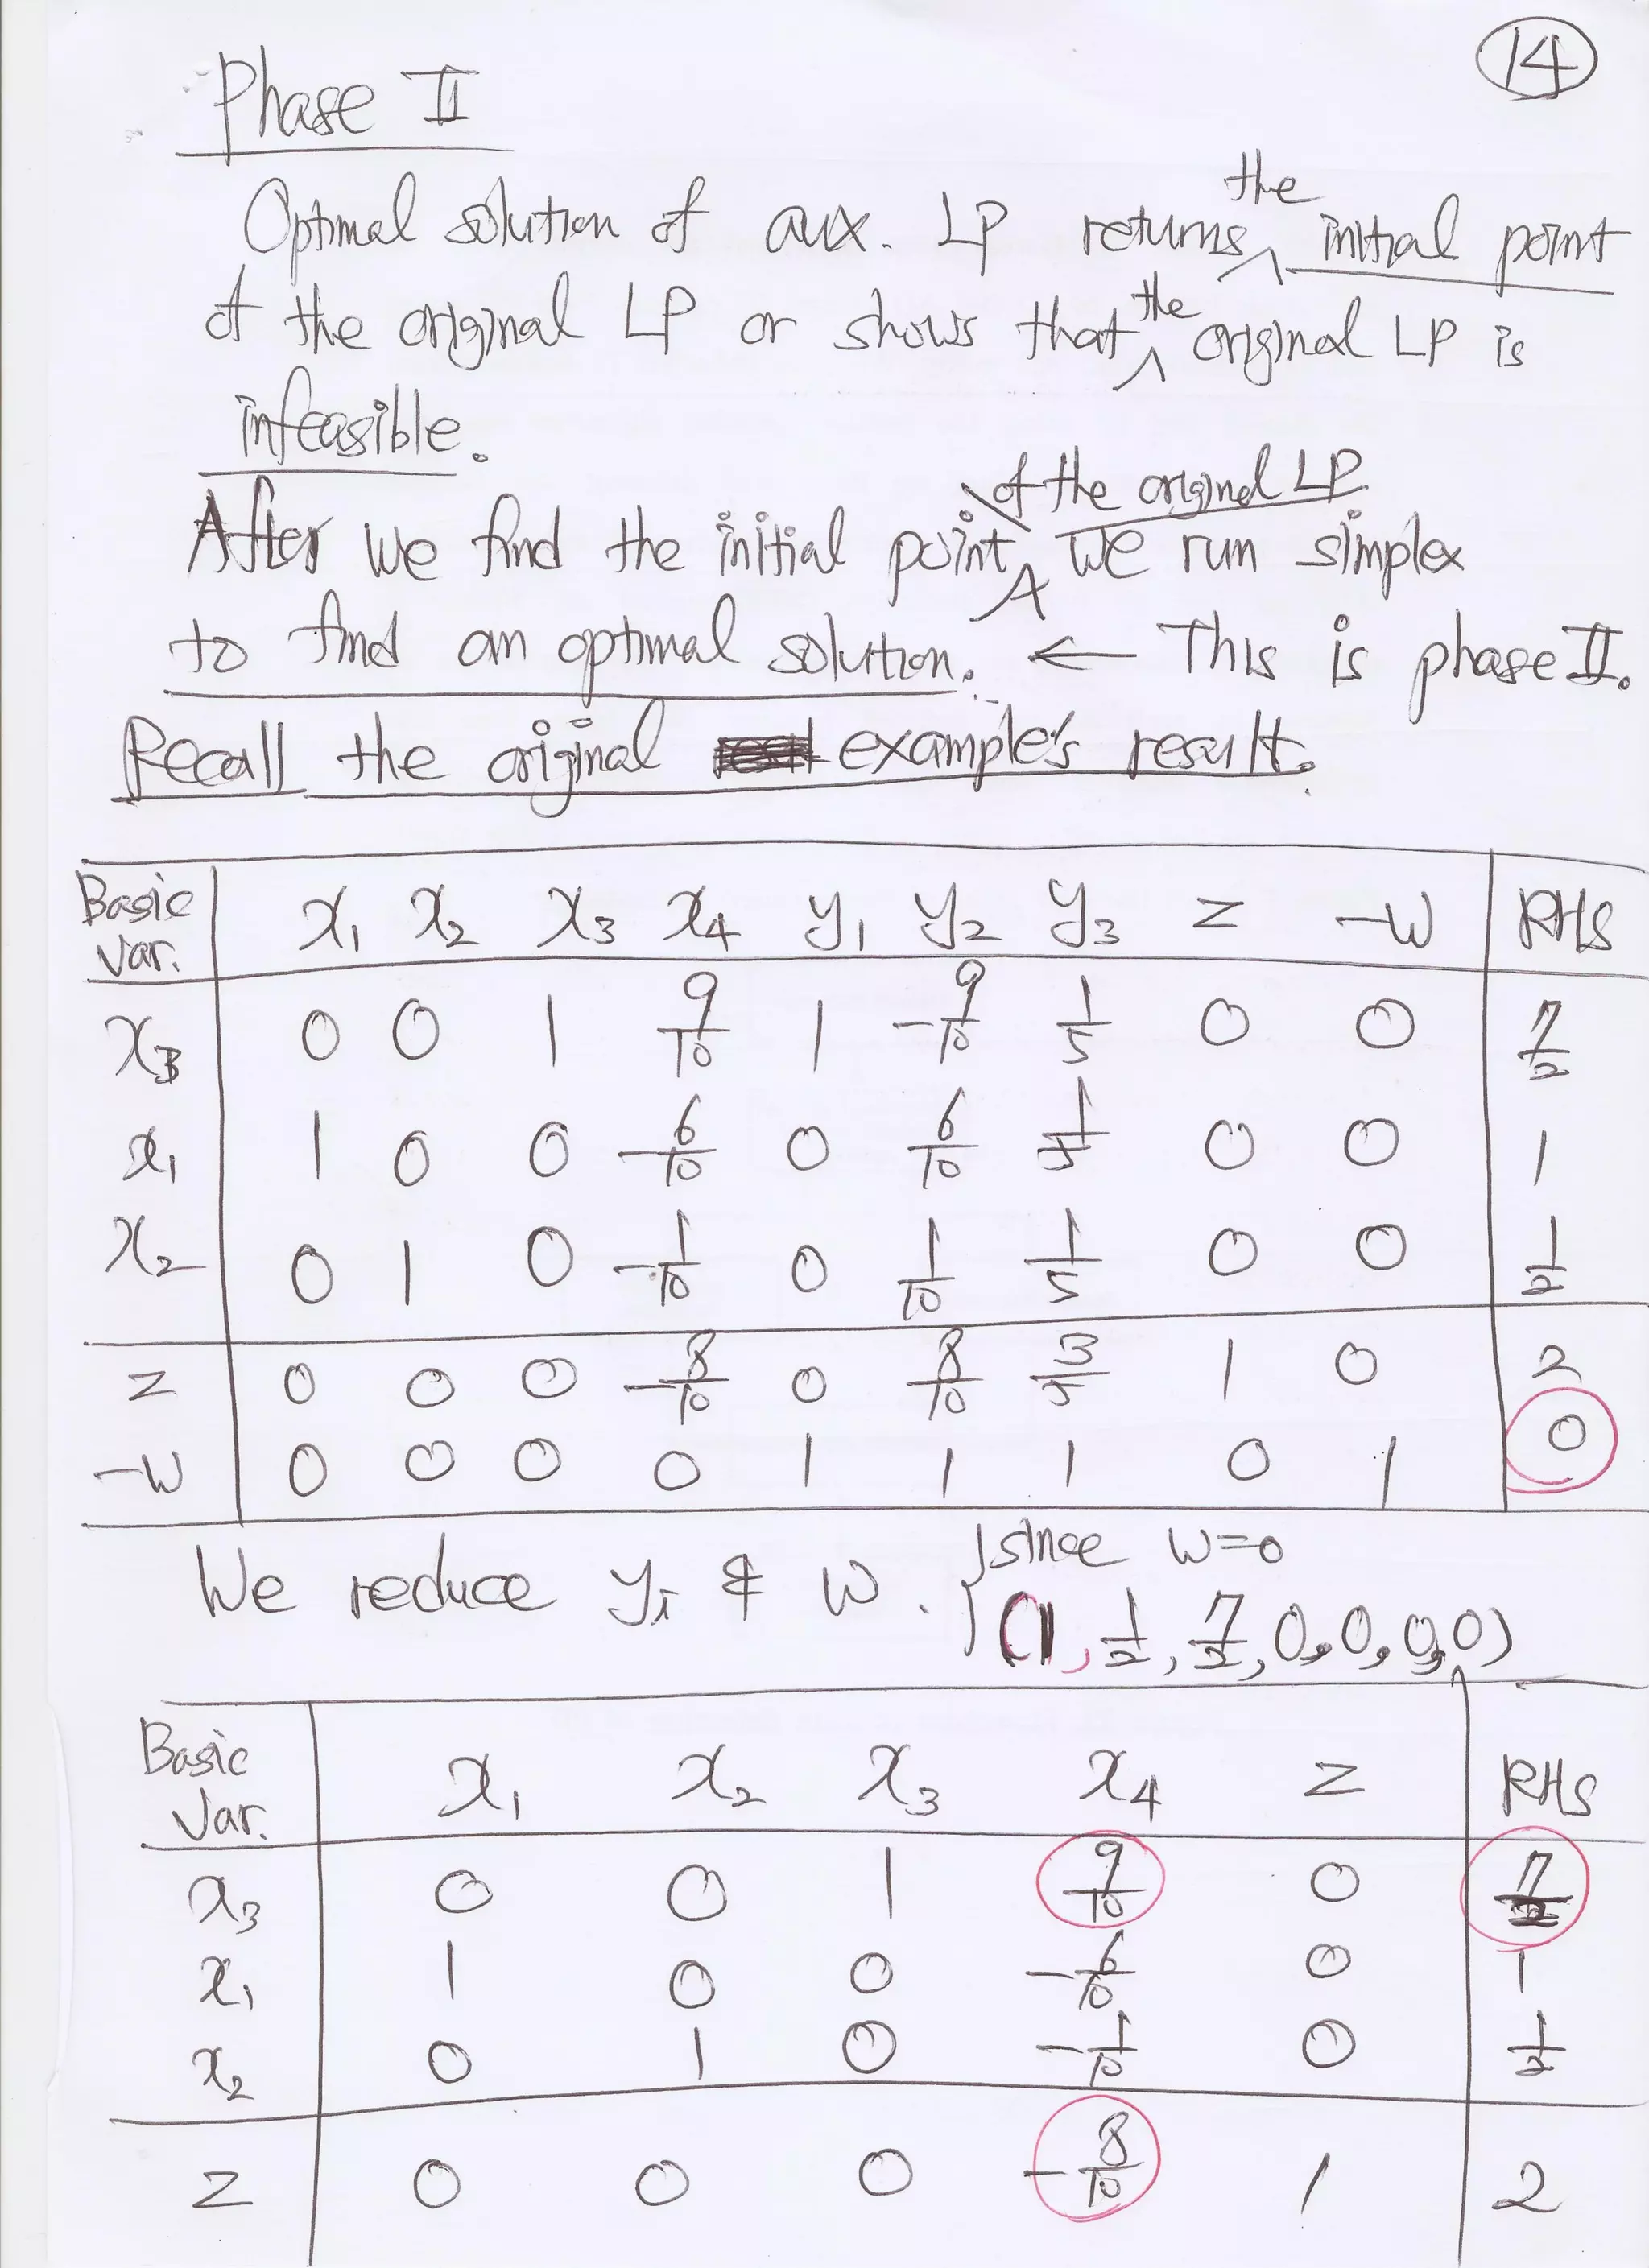 14
Phase II
Optimal solution of aux. LP returns the initial point
of the original LP or shows that the original LP is
infeasible.
After we find the initial point of the original LP we run simplex
to find an optimal solution. ← This is phase II.
Recall the original example's result.
Basic var. x₁ x₂ x₃ x₄ y₁ y₂ y₃ z -w RHS
x₃ 0 0 1 9/10 1 -9/10 1/5 0 0 7/2
x₁ 1 0 0 -6/10 0 6/10 1/5 0 0 1
x₂ 0 1 0 -1/10 0 1/10 1/5 0 0 1/2
z 0 0 0 -8/10 0 8/10 3/5 1 0 2
-w 0 0 0 0 1 1 1 0 1 0
We reduce yᵢ & w. since w=0
(1, 1/2, 7/2, 0, 0, 0, 0)
Basic Var. x₁ x₂ x₃ x₄ z RHS
x₃ 0 0 1 9/10 0 7/2
x₁ 1 0 0 -6/10 0 1
x₂ 0 1 0 -1/10 0 1/2
z 0 0 0 -8/10 1 2